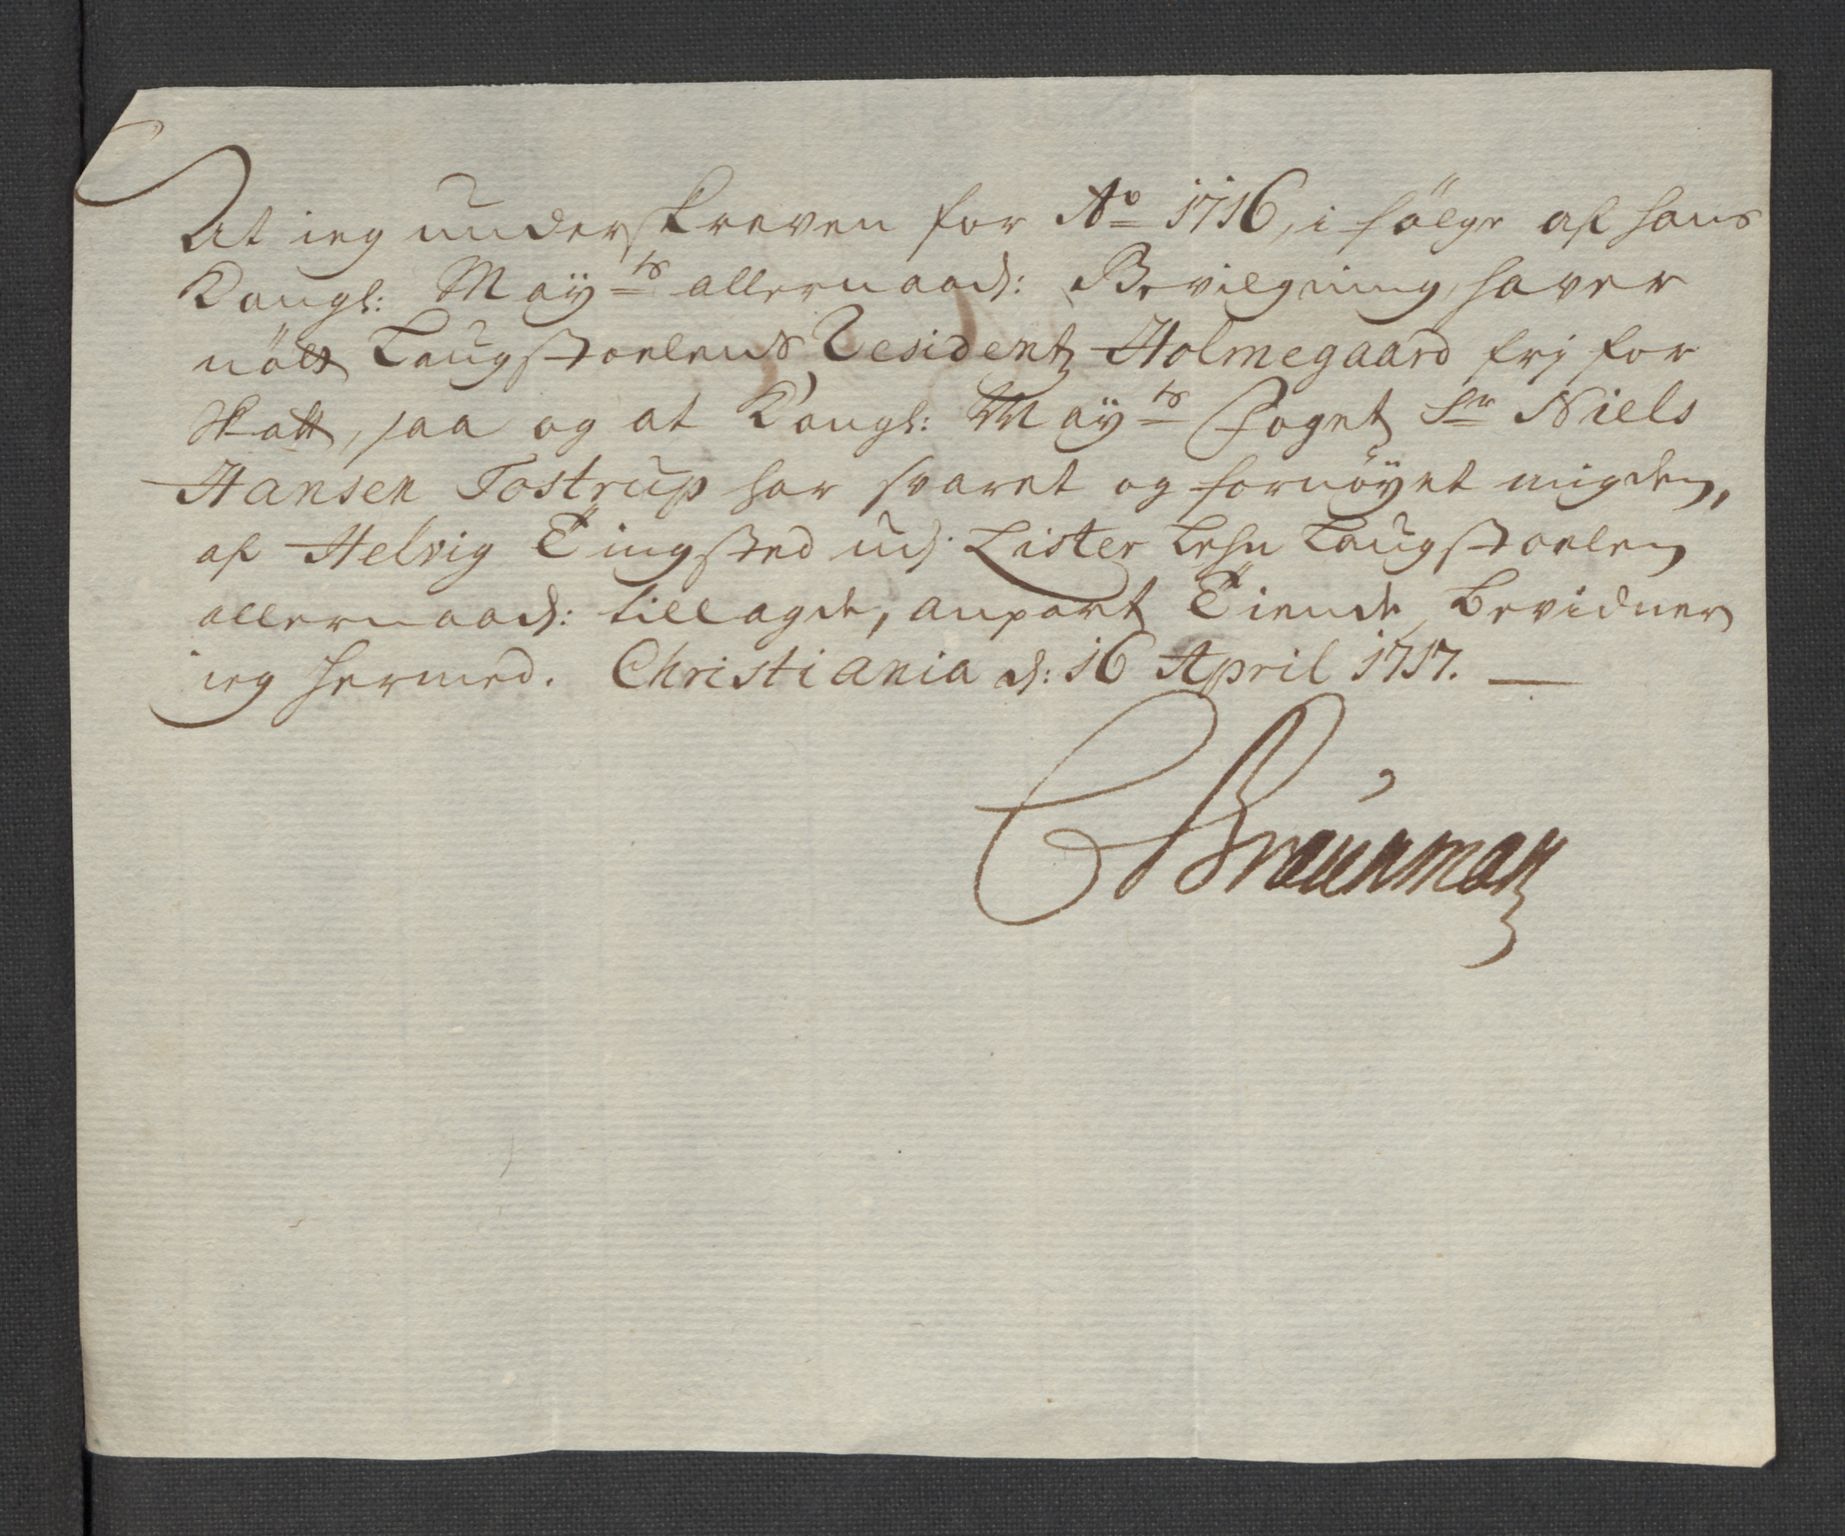 At ieg underskreven for Aº 1716, i følge af hans
Kongl: Mayts allernaad: Bevilgning, haver
nøtt Laugstoelens Residentz Holmegaard frj for
Skatt, saa og at Kongl: Mayts Foget Sr Niels
Hansen Tostrup har svaret og fornøyet mig den,
af Helvig Tingsted ud: Lister Lehn Laugstoelen
allernaad: tillagde, anpart Tiende, bevidner
ieg hermed. Christiania d: 16 April 1717.
CBraunman